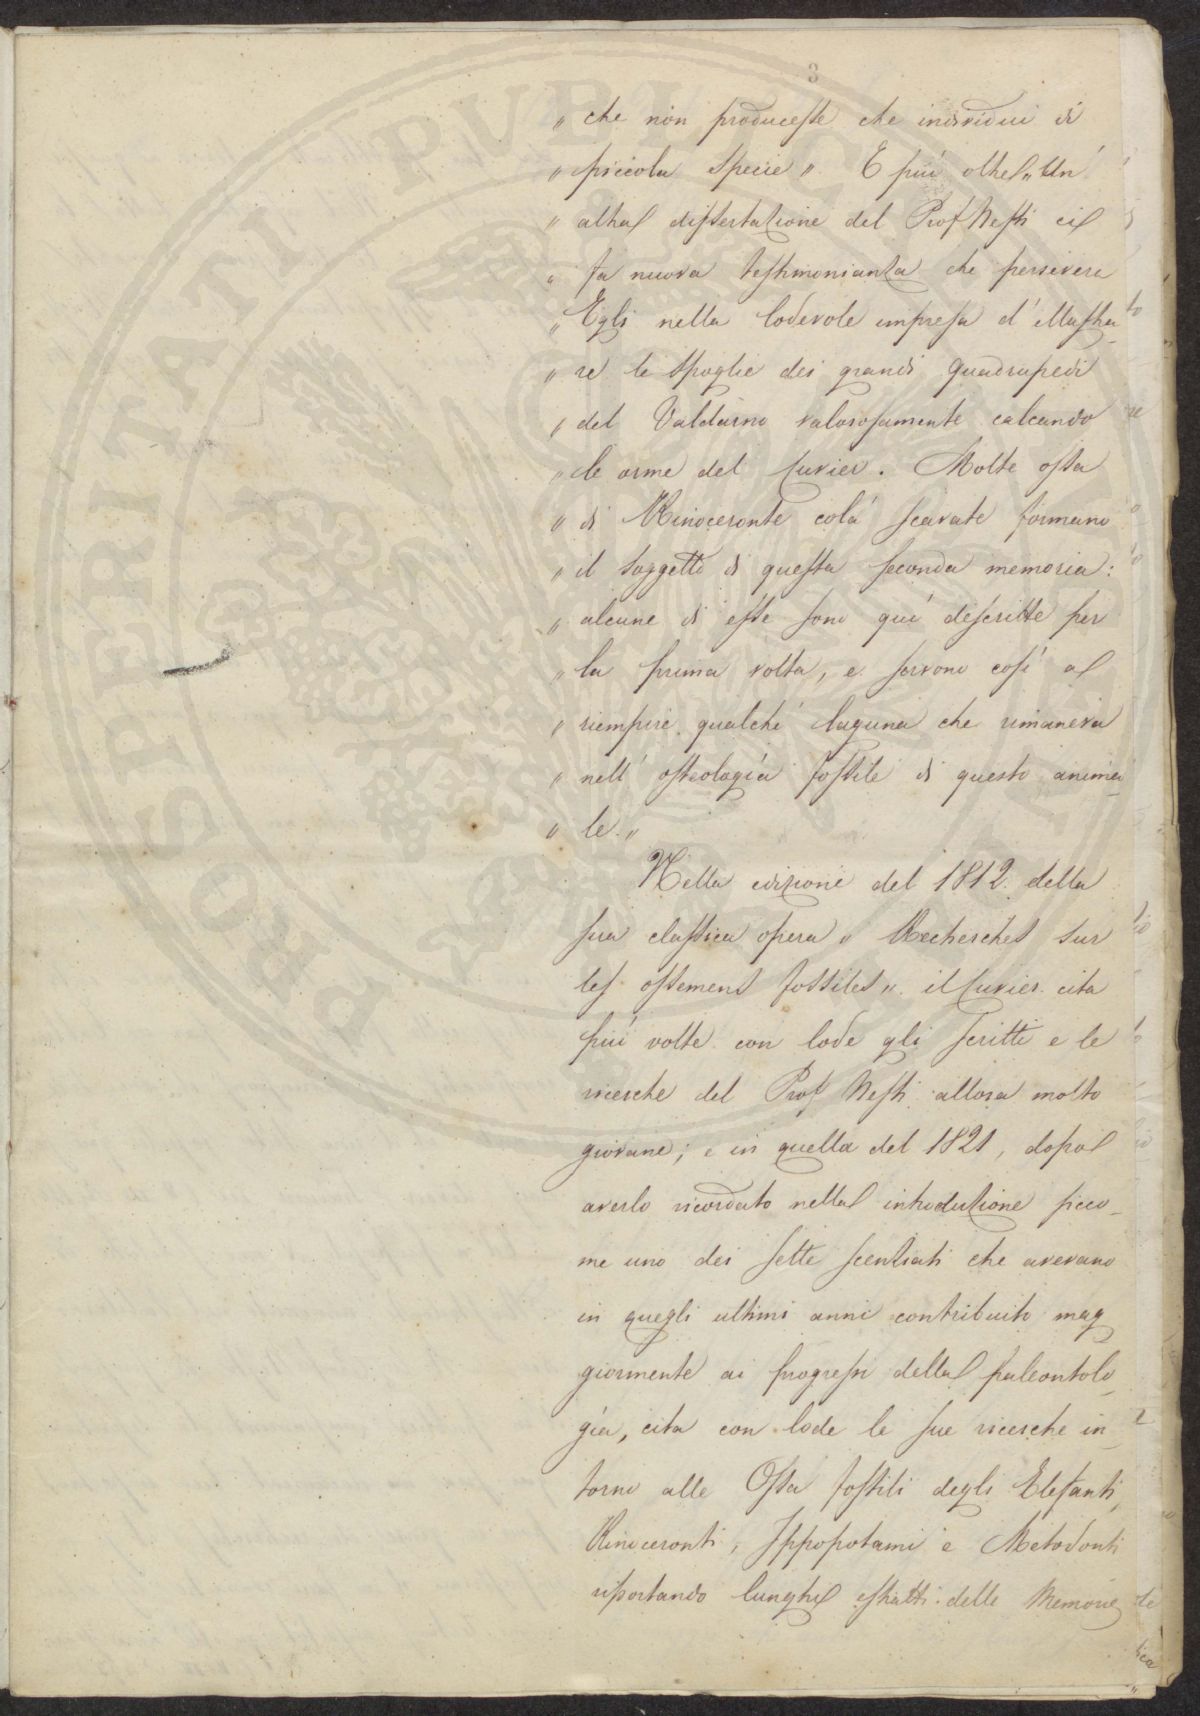 3
„ che non producesse che individui di
„ piccola specie „ E più oltre „ Un'
„ altra dissertazione del Prof Nesti ci
„ fa nuova testimonianza che persevera
„ Egli nella lodevole impresa d'illustra-
„ re le spoglie dei grandi quadrupedi
„ del Valdarno valorosamente calcando
„ le orme del Cuvier. Molte ossa
„ di Rinoceronte colá scavate formano
„ il soggetto di questa seconda memoria:
„ alcune di esse sono quí descritte per
„ la prima volta, e servono cosí a
„ riempire qualche laguna che rimaneva
„ nell'osteología fossile di questo anima-
„ le. „
Nella edizione del 1812. della
sua classica opera „ Recherches sur
les ossemens fossiles „. il Cuvier cita
piú volte con lode gli scritti e le
ricerche del Prof Nesti allora molto
giovane; e in quella del 1821, dopo
averlo ricordato nella introduzione sicco-
me uno dei sette scenziati che avevano
in quegli ultimi anni contribuito mag
giormente ai progressi della paleontolo-
gía, cita con lode le sue ricerche in-
torno alle Ossa fossili degli Elefanti,
Rinoceronti, Ippopotami e Metodonti
riportando lunghi estratti delle Memorie
PUBLIC